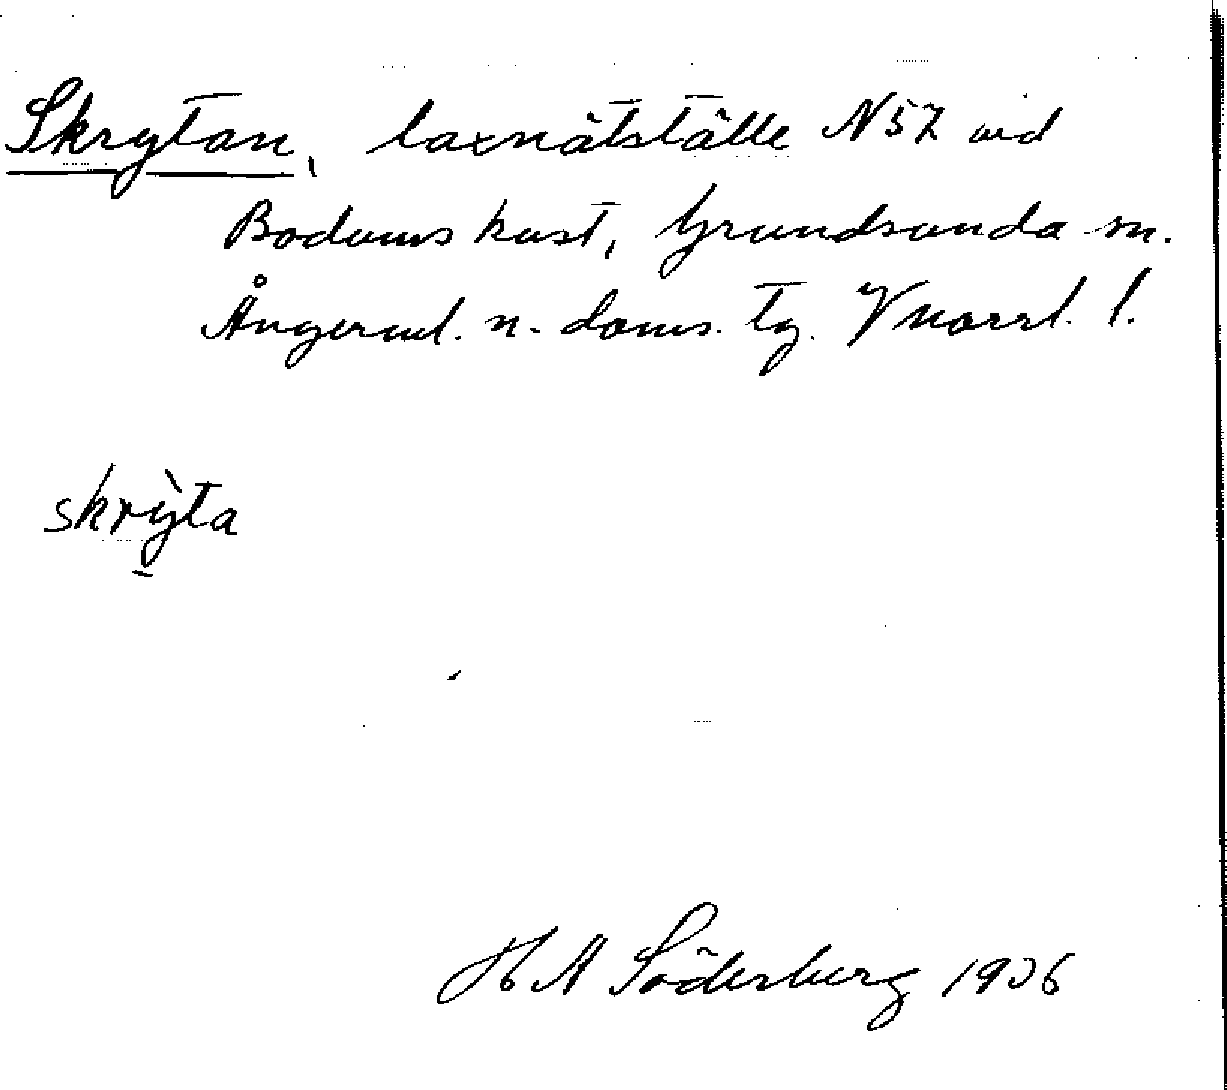 Skrytan, laxnätställe N 57 vid
Bodums kust, Grundsunda sn.
Ångerml. n. doms. tg. Vnorrl. l.
skrỳta
H A Söderberg 1936